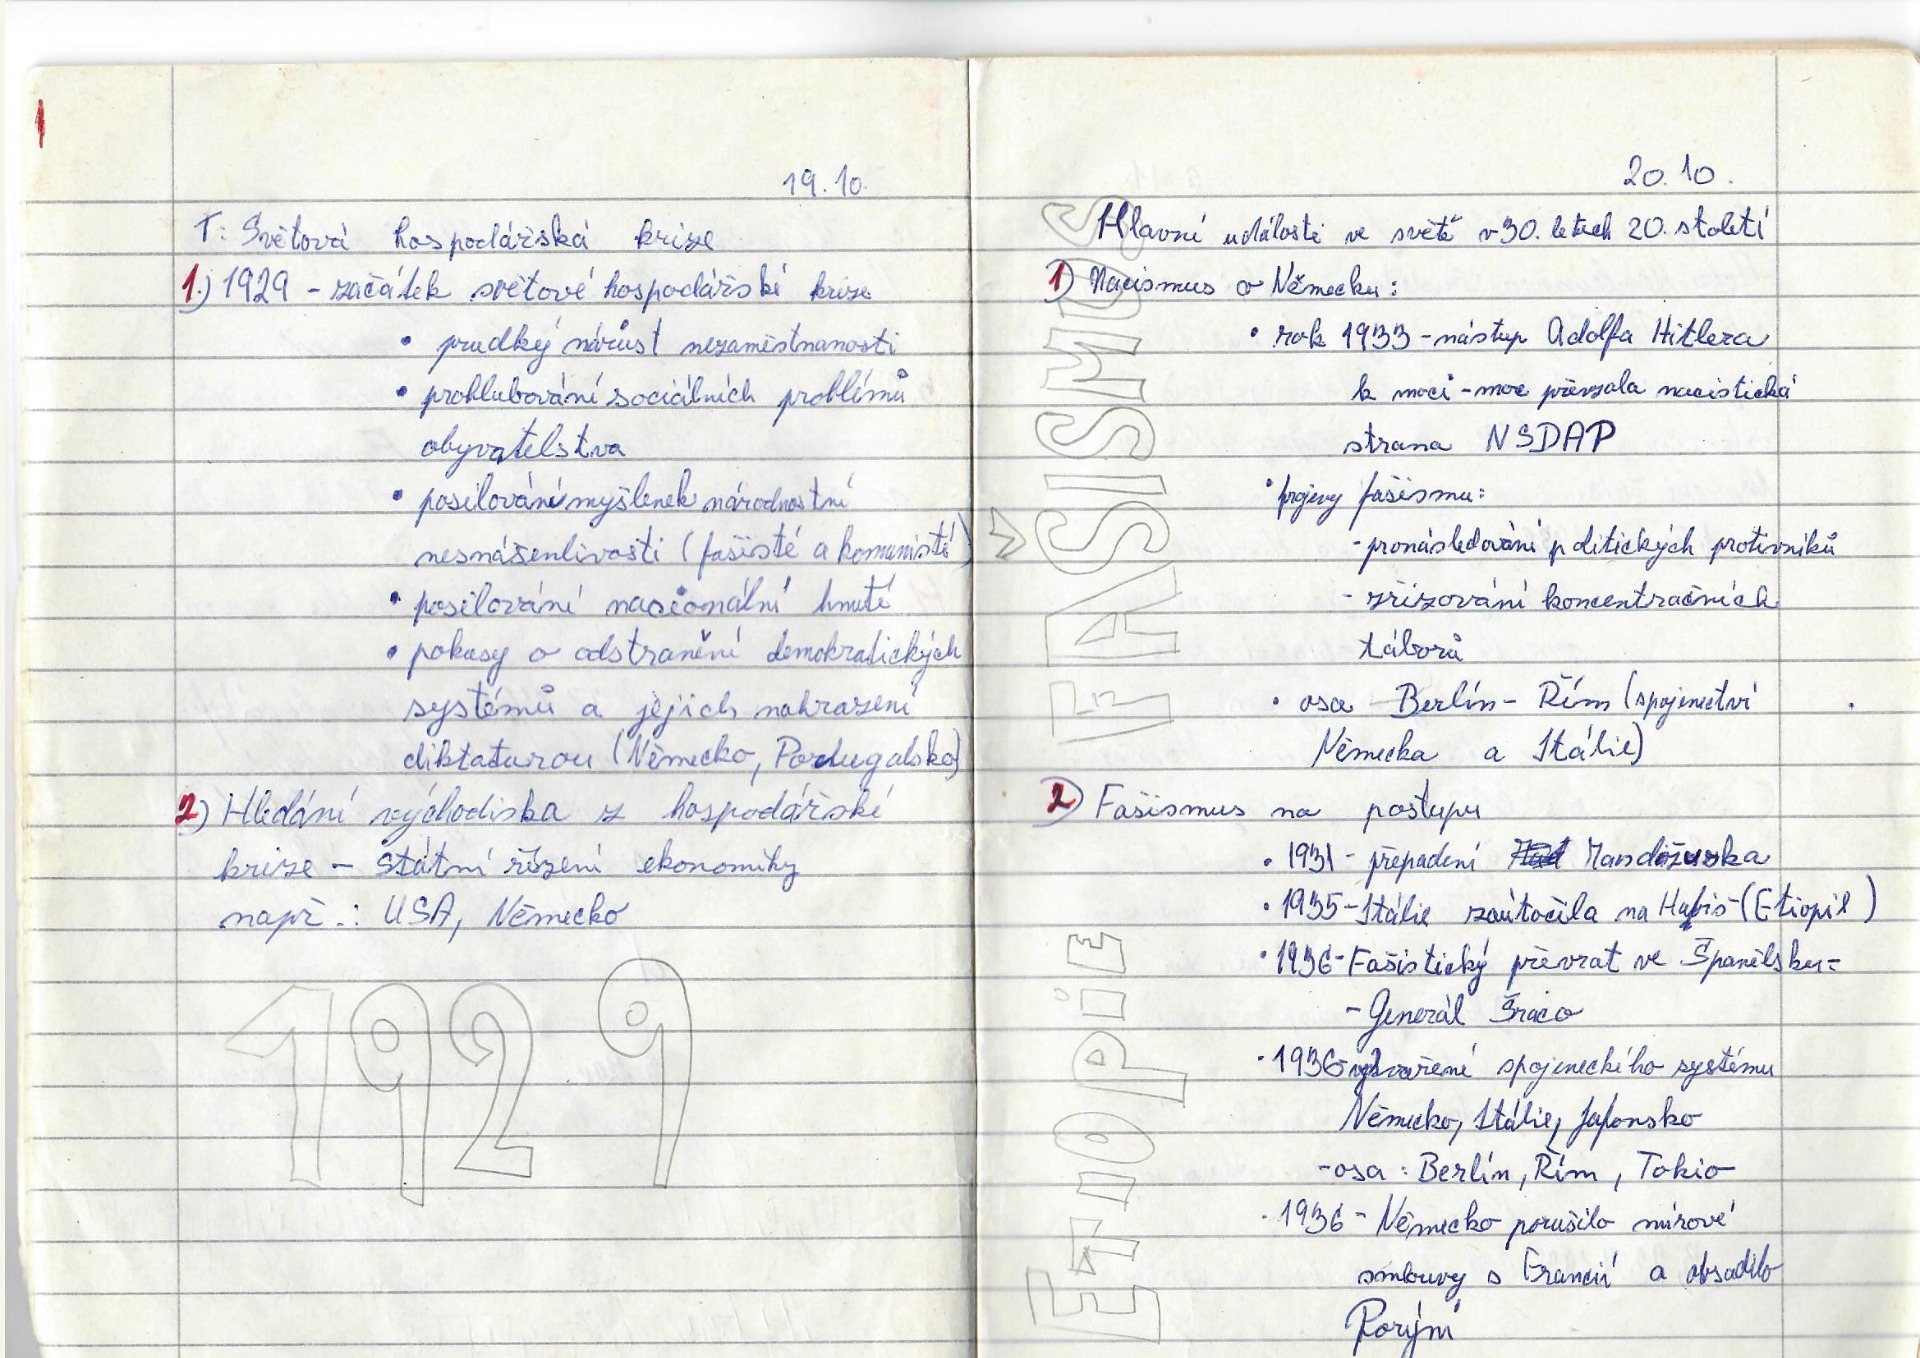 1
19.10.
T: Světová hospodářská krize
1.) 1929 - začátek světové hospodářské krize
• prudký nárůst nezaměstnanosti
• prohlubování sociálních problémů
obyvatelstva
• posilování myšlenek národnostní
nesnášenlivosti (fašisté a komunisté)
• posilování nacionální hnutí
• pokusy o odstranění demokratických
systémů a jejich nahrazení
diktaturou (Německo, Portugalsko)
2) Hledání východiska z hospodářské
krize - státní řízení ekonomiky
např.: USA, Německo
1929
20.10.
Hlavní události ve světě v 30. letech 20. století
1) Nacismus v Německu:
• rok 1933 - nástup Adolfa Hitlera
k moci - moc převzala nacistická
strana NSDAP
• projevy fašismu:
- pronásledování politických protivníků
- zřizování koncentračních
táborů
• osa Berlín - Řím (spojenectví
Německa a Itálie)
2) Fašismus na postupu
• 1931 - přepadení Mandžuska
• 1935 - Itálie zaútočila na Habiš (Etiopii)
• 1936 - Fašistický převrat ve Španělsku -
- Generál Franco
• 1936 - vytvoření spojeneckého systému
Německo, Itálie, Japonsko
- osa: Berlín, Řím, Tokio
• 1936 - Německo porušilo mírové
smlouvy s Francií a obsadilo
Porýní
FASISMUS
EtiOPiE